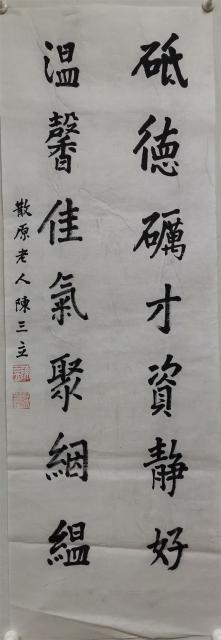 砥德礪才資靜好
溫馨佳氣聚絪縕
散原老人陳三立